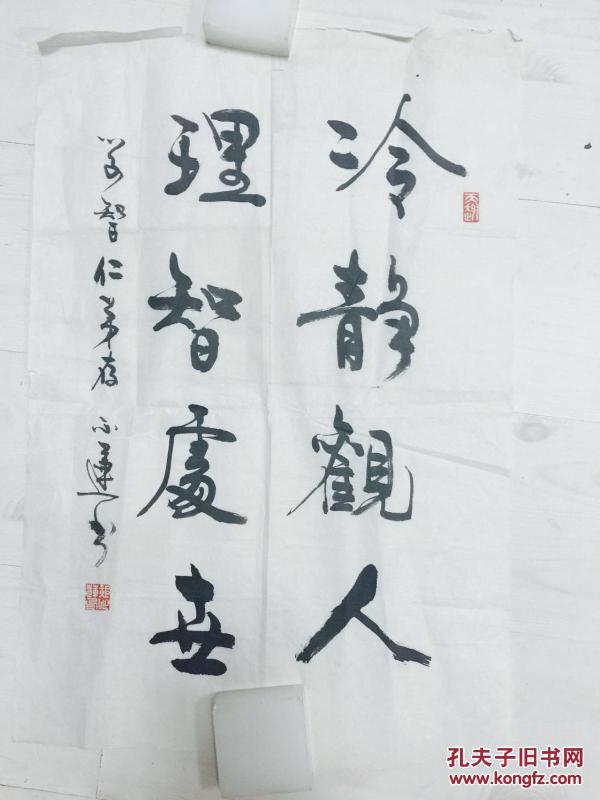 冷静觀人
理智處世
智仁弟存
孔夫子旧书网
www.kongfz.com